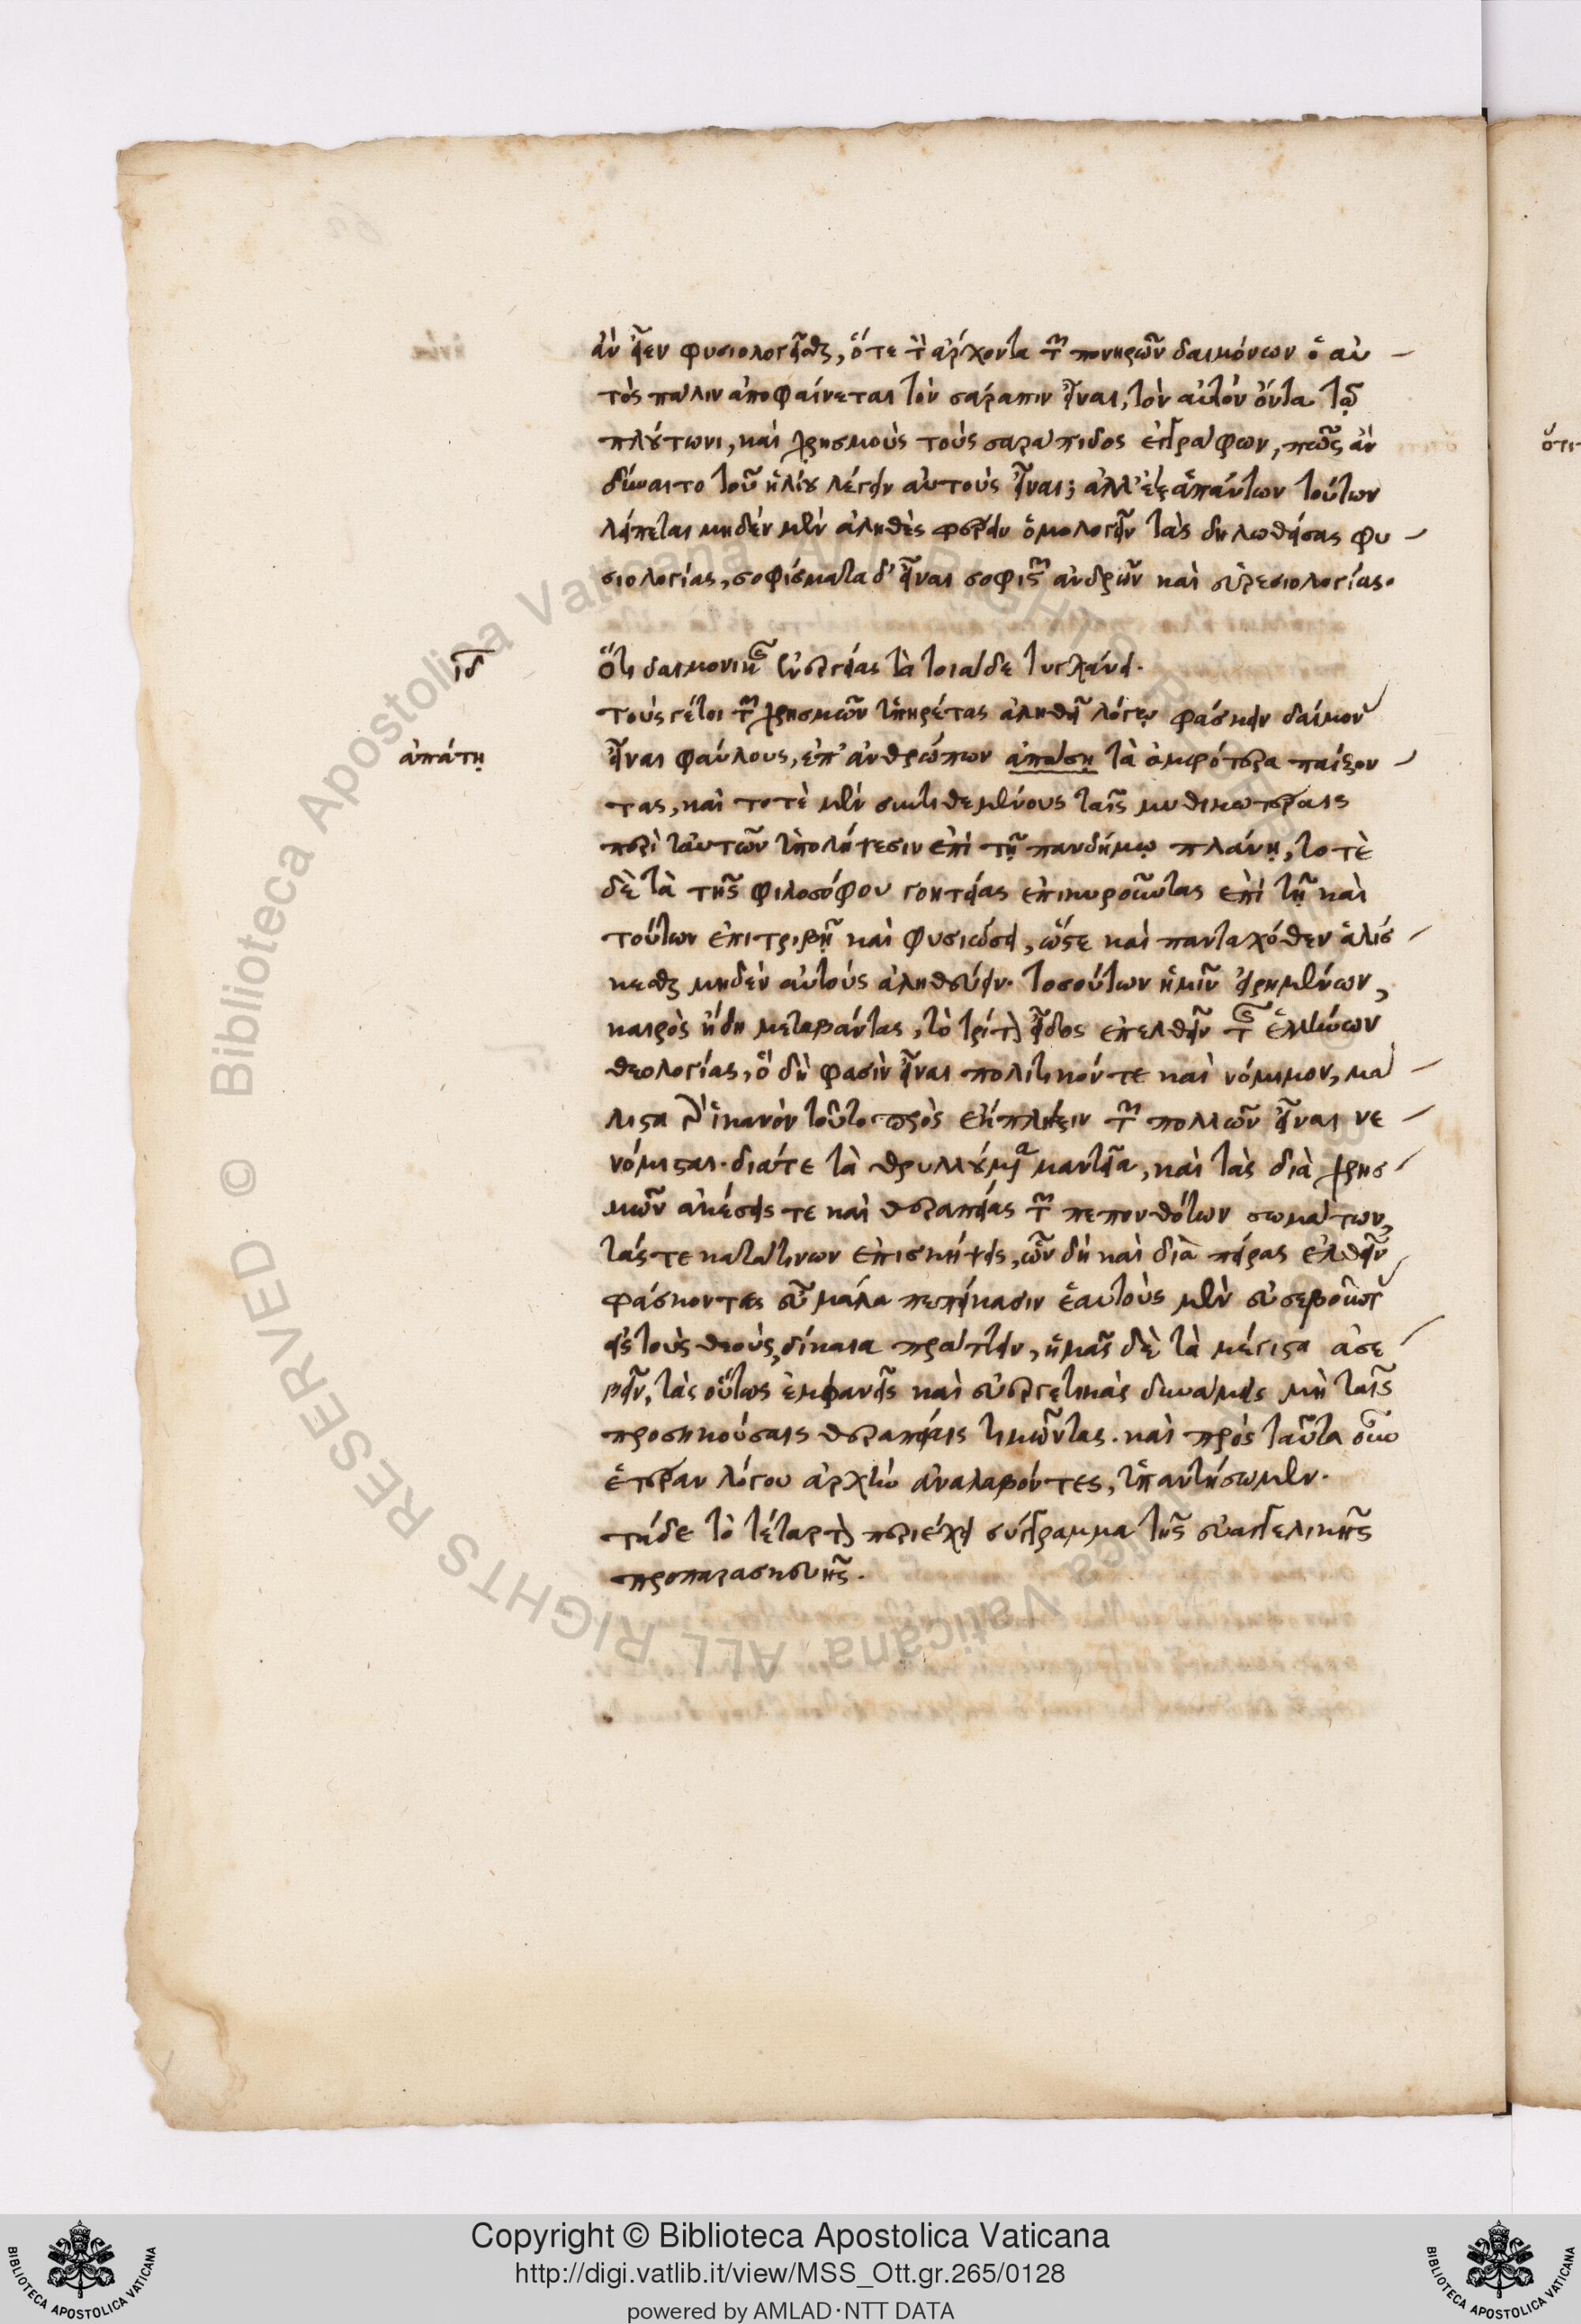 ἂν εἶεν φυσιολογεῖσθαι, ὅτε τὸν ἄρχοντα τῶν πονηρῶν δαιμόνων ὁ αὐ
τὸς πάλιν ἀποφαίνεται τὸν σάραπιν εἶναι, τὸν αὐτὸν ὄντα τῷ
πλούτωνι, καὶ χρησμοὺς τοὺς σαράπιδος ἐπγράφων, πῶς ἂν
δύναιτο τοῦ ἡλίου λέγειν αὐτοὺς εἶναι; ἀλλ' ἐξ ἁπάντων τούτων
λείπεται μηδὲν μὲν ἀληθὲς φέρειν ὁμολογεῖν τὰς δηλωθείσας φυ
σιολογίας, σοφίσματα δ' εἶναι σοφιστῶν ἀνδρῶν καὶ εὑρεσιολογίας.
ιδ
Ὅτι δαιμονικῆς ἐνεργείας τὰ τοιάδε τυγχάνει.
τοὺς γέτοι τῶν χρησμῶν ὑπηρέτας ἀληθεῖ λόγῳ φάσκειν δαίμον
ἀπάτῃ
εἶναι φαύλους, ἐπ' ἀνθρώπων ἁπάσῃ τὰ ἀμφότερα παίζον
τας, καὶ τοτὲ μὲν συντιθεμένους ταῖς μυθικωτέραις
περὶ ἑαυτῶν ὑπολήψεσιν ἐπὶ τῇ πανδήμῳ πλάνῃ, τοτὲ
δὲ τὰ τῆς φιλοσόφου γοητείας ἐπικυροῦντας ἐπὶ τῇ καὶ
τούτων ἐπιτριβῇ καὶ φυσιώσει, ὥστε καὶ πανταχόθεν ἁλίσ
κεσθαι μηδὲν αὐτοὺς ἀληθεύειν. τοσούτων ἡμῖν εἰρημένων,
καιρὸς ἤδη μεταβάντας, τὸ τρίτον εἶδος ἐπελθεῖν τῆς ἑλλήνων
θεολογίας, ὃ δή φασιν εἶναι πολιτικόν τε καὶ νόμιμον, μά
λιστα γὰρ ἱκανὸν τοῦτο πρὸς ἔκπληξιν τῶν πολλῶν εἶναι νε
νόμισται. διά τε τὰ θρυλλούμενα μαντεῖα, καὶ τὰς διὰ χρησ
μῶν ἀκέσεις τε καὶ θεραπείας τῶν πεπονθότων σωμάτων,
τάς τε κατά τινων ἐπισκήψεις, ὧν δὴ καὶ διὰ πείρας ἐλθεῖν
φάσκοντες εὖ μάλα πεπείκασιν ἑαυτοὺς μὲν εὐσεβοῦντ
εἰς τοὺς θεούς, δίκαια πράττειν, ἡμᾶς δὲ τὰ μέγιστα ἀσε
βεῖν, τὰς οὕτως ἐμφανεῖς καὶ εὐεργετικὰς δυνάμεις μὴ ταῖς
προσηκούσαις θεραπείαις τιμῶντας. καὶ πρὸς ταῦτα οὖν
ἑτέραν λόγου ἀρχὴν ἀναλαβόντες, ὑπαντήσωμεν.
τάδε τὸ τέταρτον περιέχει σύγγραμμα τῆς εὐαγγελικῆς
προπαρασκευῆς.
ὅτι
Biblioteca Apostolica Vaticana ALL RIGHTS RESERVED ©
Copyright © Biblioteca Apostolica Vaticana
http://digi.vatlib.it/view/MSS_Ott.gr.265/0128
powered by AMLAD·NTT DATA
BIBLIOTECA APOSTOLICA VATICANA
BIBLIOTECA APOSTOLICA VATICANA